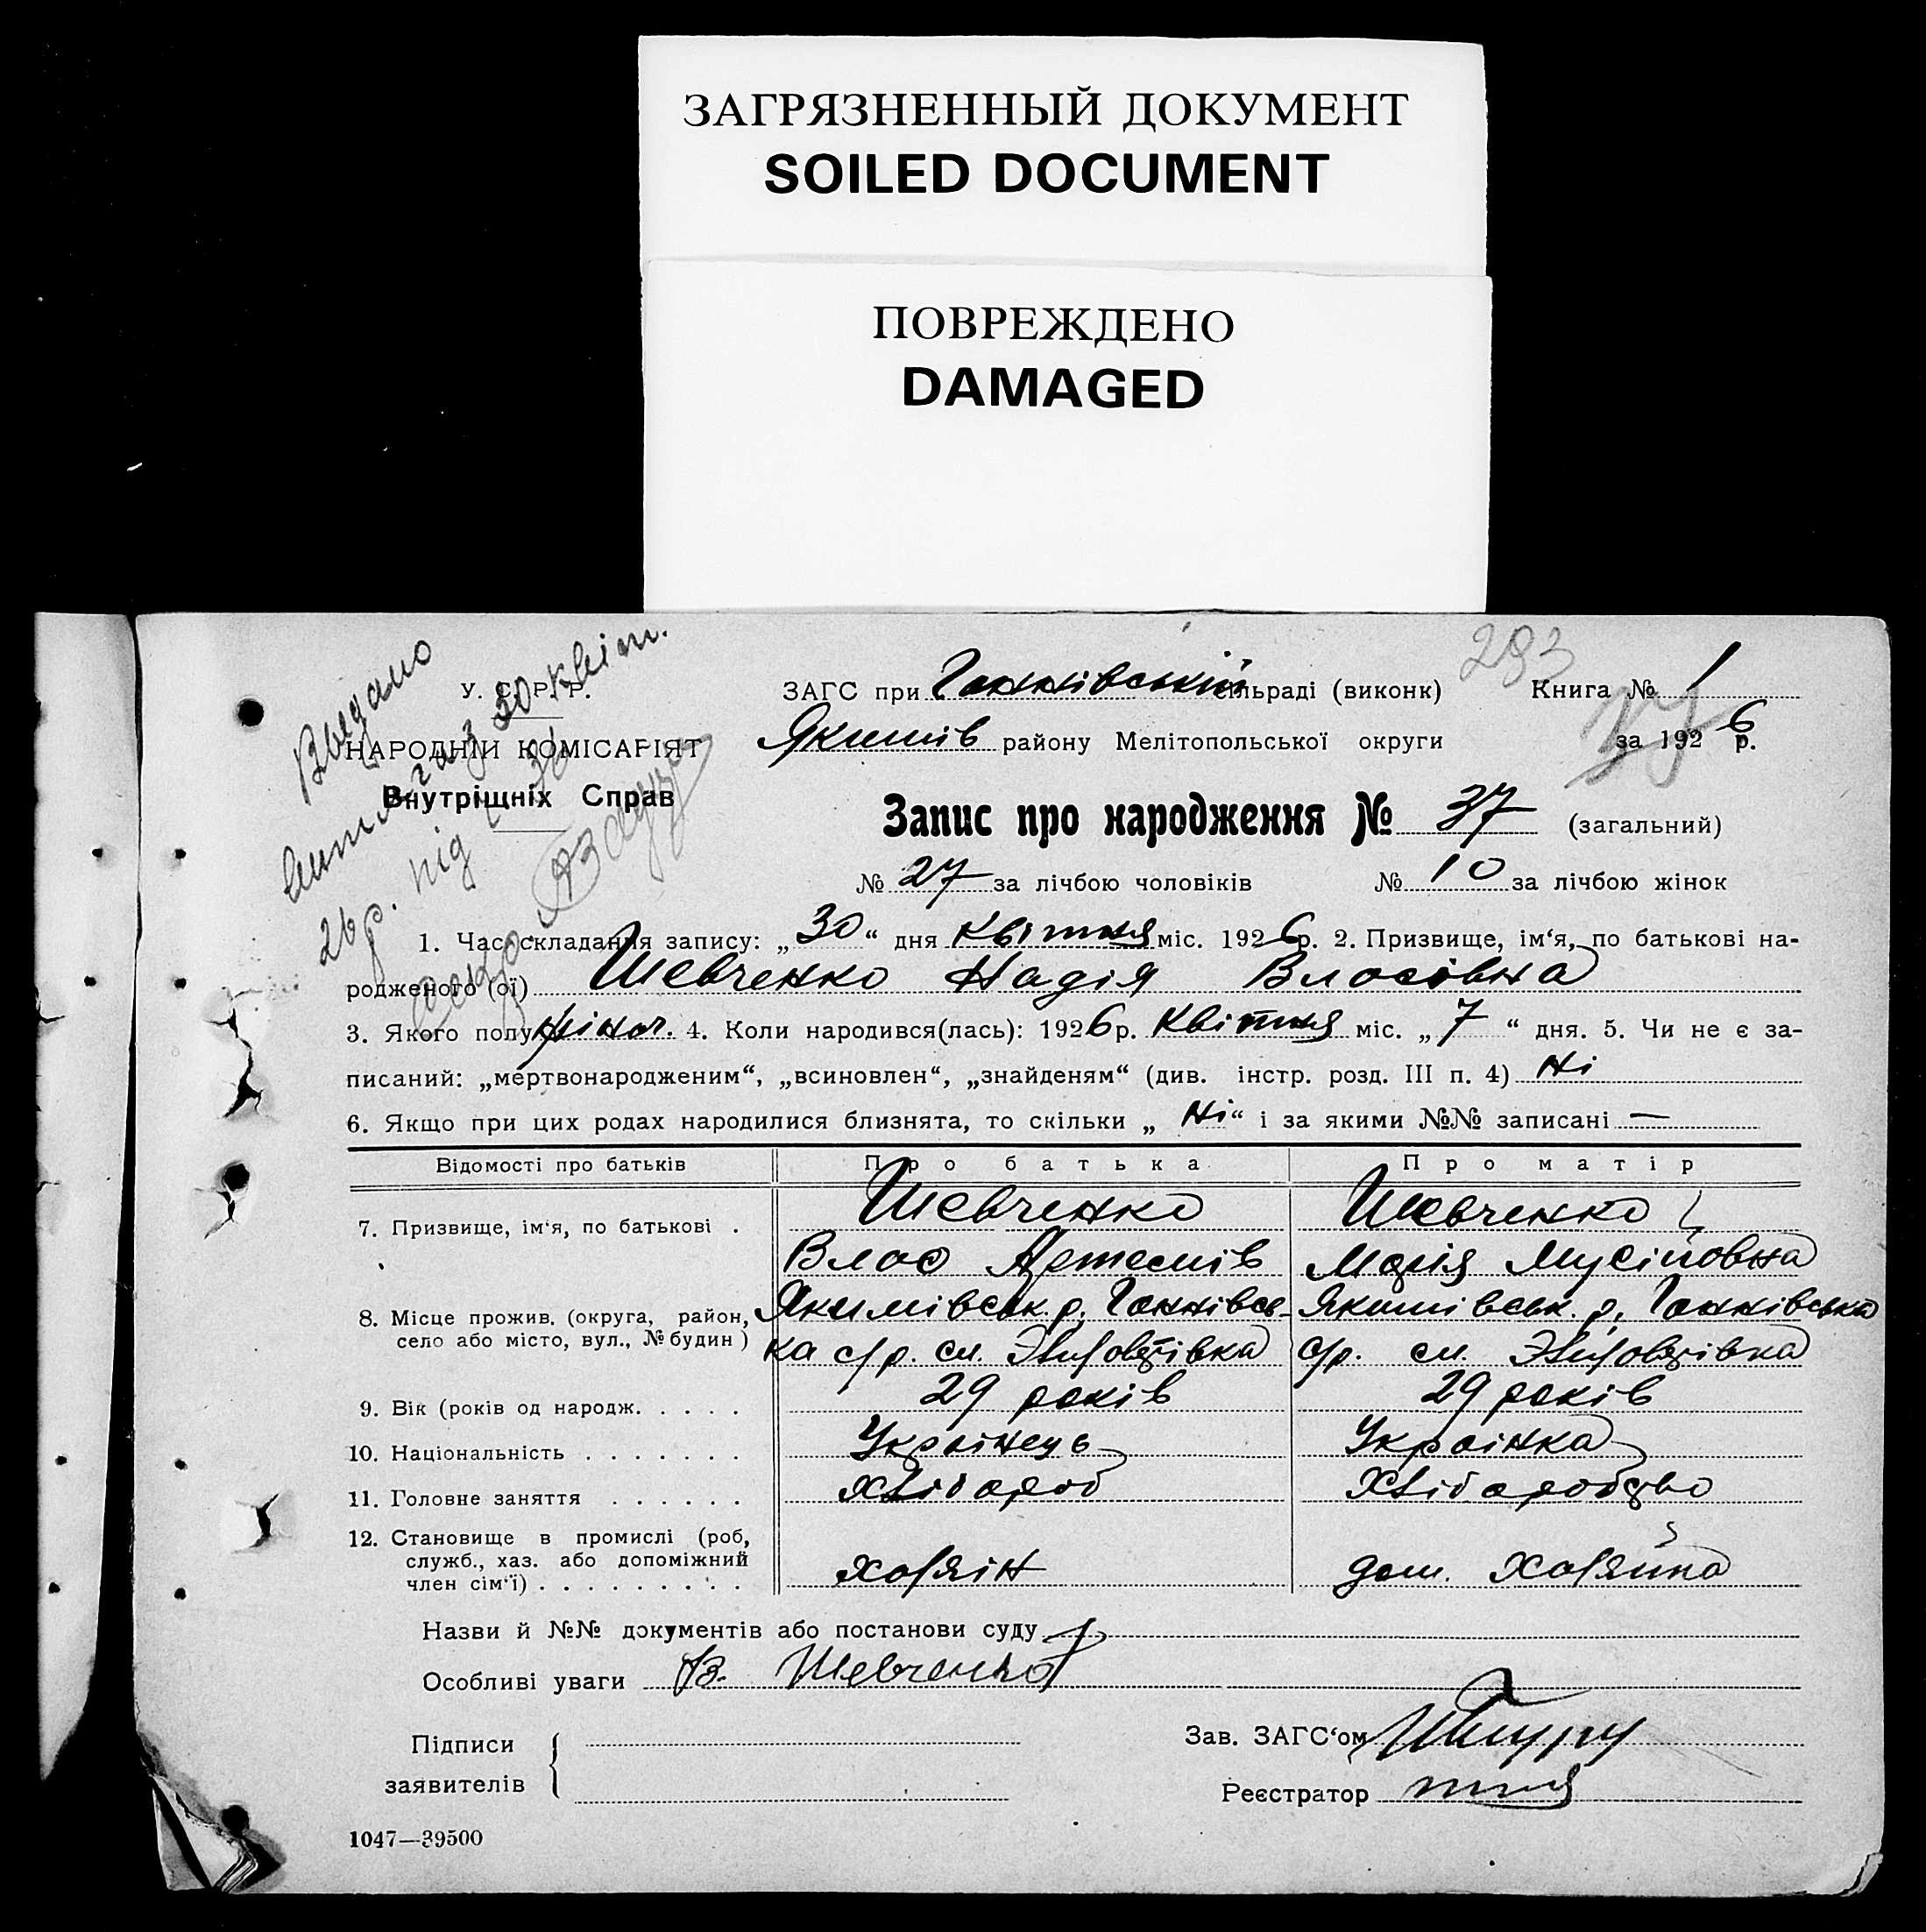 ЗАГРЯЗНЕННЫЙ ДОКУМЕНТ
SOILED DOCUMENT
ПОВРЕЖДЕНО
DAMAGED
Видано
витяг з 30 квіт.
26 р. під
293
У. С. Р. Р.
НАРОДНІЙ КОМІСАРІЯТ
Внутрішніх Справ
ЗАГС при Ганнівській сільраді (виконк) Книга № 1
Якимів району Мелітопольської округи за 1926 р.
Запис про народження № 37 (загальний)
№ 27 за лічбою чоловіків № 10 за лічбою жінок
1. Час складання запису: „30“ дня Квітня міс. 1926 р. 2. Призвище, ім‘я, по батькові на-
родженого (ої) Шевченко Надія Власівна
3. Якого полу жіноч. 4. Коли народився(лась): 1926 р. Квітня міс. „7“ дня. 5. Чи не є за-
писаний: „мертвонародженим“, „всиновлен“, „знайденям“ (див. інстр. розд. III п. 4) Ні
6. Якщо при цих родах народилися близнята, то скільки „Ні“ і за якими №№ записані —
Відомості про батьків Про батька Про матір
7. Призвище, ім‘я, по батькові . Шевченко Шевченко
Влас Артемів Марія Мусіївна
8. Місце прожив. (округа, район, Якимівськ. р. Ганнівсь- Якимівськ. р. Ганнівська
село або місто, вул., № будин ) ка с/р. с/р.
9. Вік (років од народж. . . . . 29 років 29 років
10. Національність . . . . . . . Українець Українка
11. Головне заняття . . . . . . Хлібароб Хлібаробство
12. Становище в промислі (роб,
служб., хаз. або допоміжний
член сім‘ї) . . . . . . . . . . Хазяін дом. Хазяйка
Назви й №№ документів або постанови суду
Особливі уваги В. Шевченко
Підписи
заявителів
Зав. ЗАГС‘ом
Реєстратор
1047—39500